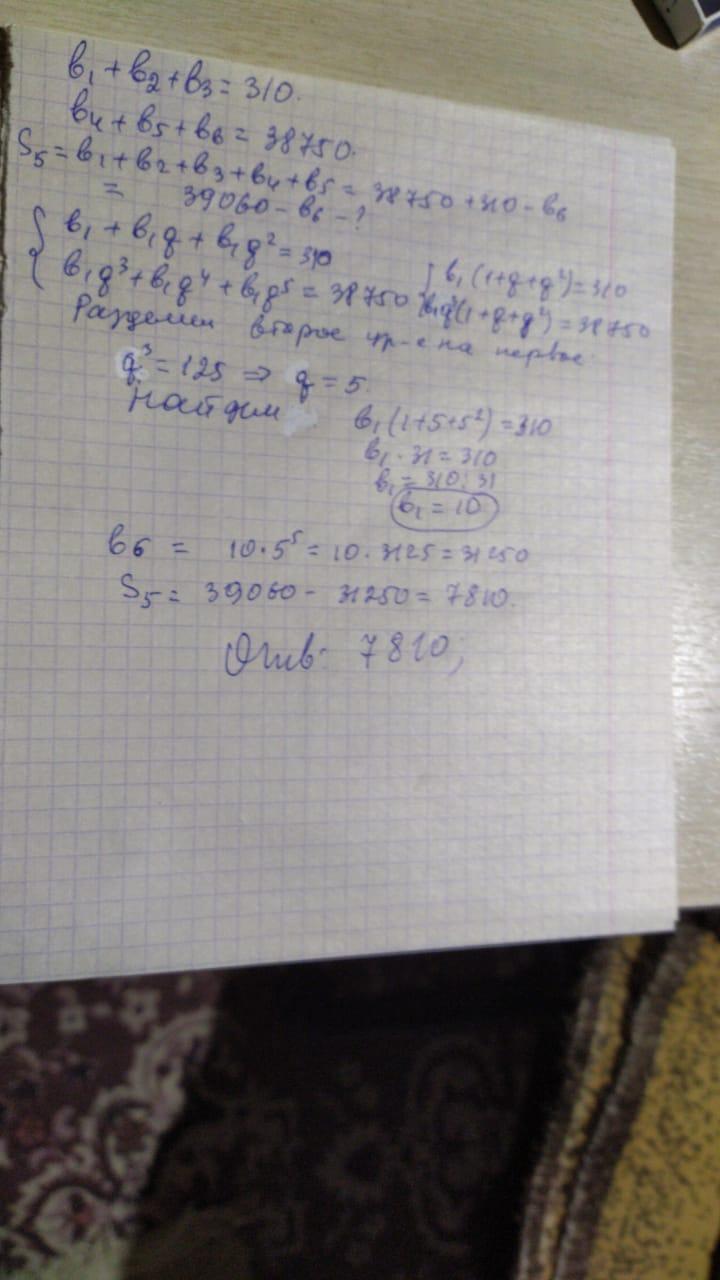 b₁ + b₂ + b₃ = 310.
b₄ + b₅ + b₆ = 38750.
S₅ = b₁ + b₂ + b₃ + b₄ + b₅ = 38750 + 310 - b₆
= 39060 - b₆ - ?
{ b₁ + b₁q + b₁q² = 310
b₁q³ + b₁q⁴ + b₁q⁵ = 38750
{ b₁(1+q+q²) = 310
b₁q³(1+q+q²) = 38750
Разделим второе ур-е на первое.
q³ = 125 ⇒ q = 5.
Найдем
b₁(1+5+5²) = 310
b₁ · 31 = 310
b₁ = 310 : 31
b₁ = 10
b6 = 10 · 5⁵ = 10 · 3125 = 31250
S₅ = 39060 - 31250 = 7810.
Отв: 7810;